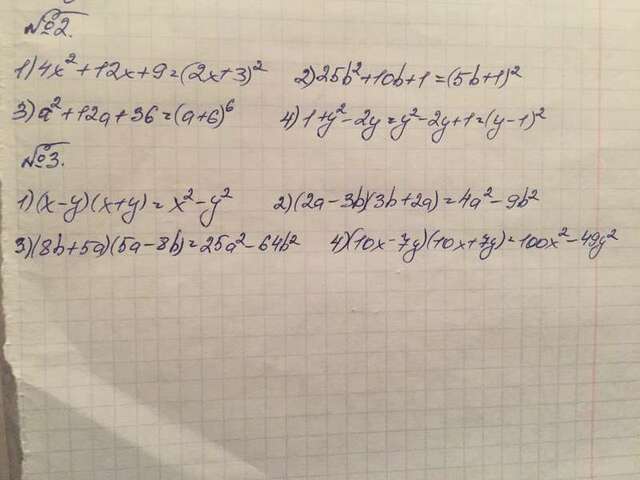 №2.
1) 4x² + 12x + 9 = (2x + 3)² 2) 25b² + 10b + 1 = (5b + 1)²
3) a² + 12a + 36 = (a + 6)⁶ 4) 1 + y² - 2y = y² - 2y + 1 = (y - 1)²
№3.
1) (x - y)(x + y) = x² - y² 2) (2a - 3b)(3b + 2a) = 4a² - 9b²
3) (8b + 5a)(5a - 8b) = 25a² - 64b² 4) (10x - 7y)(10x + 7y) = 100x² - 49y²